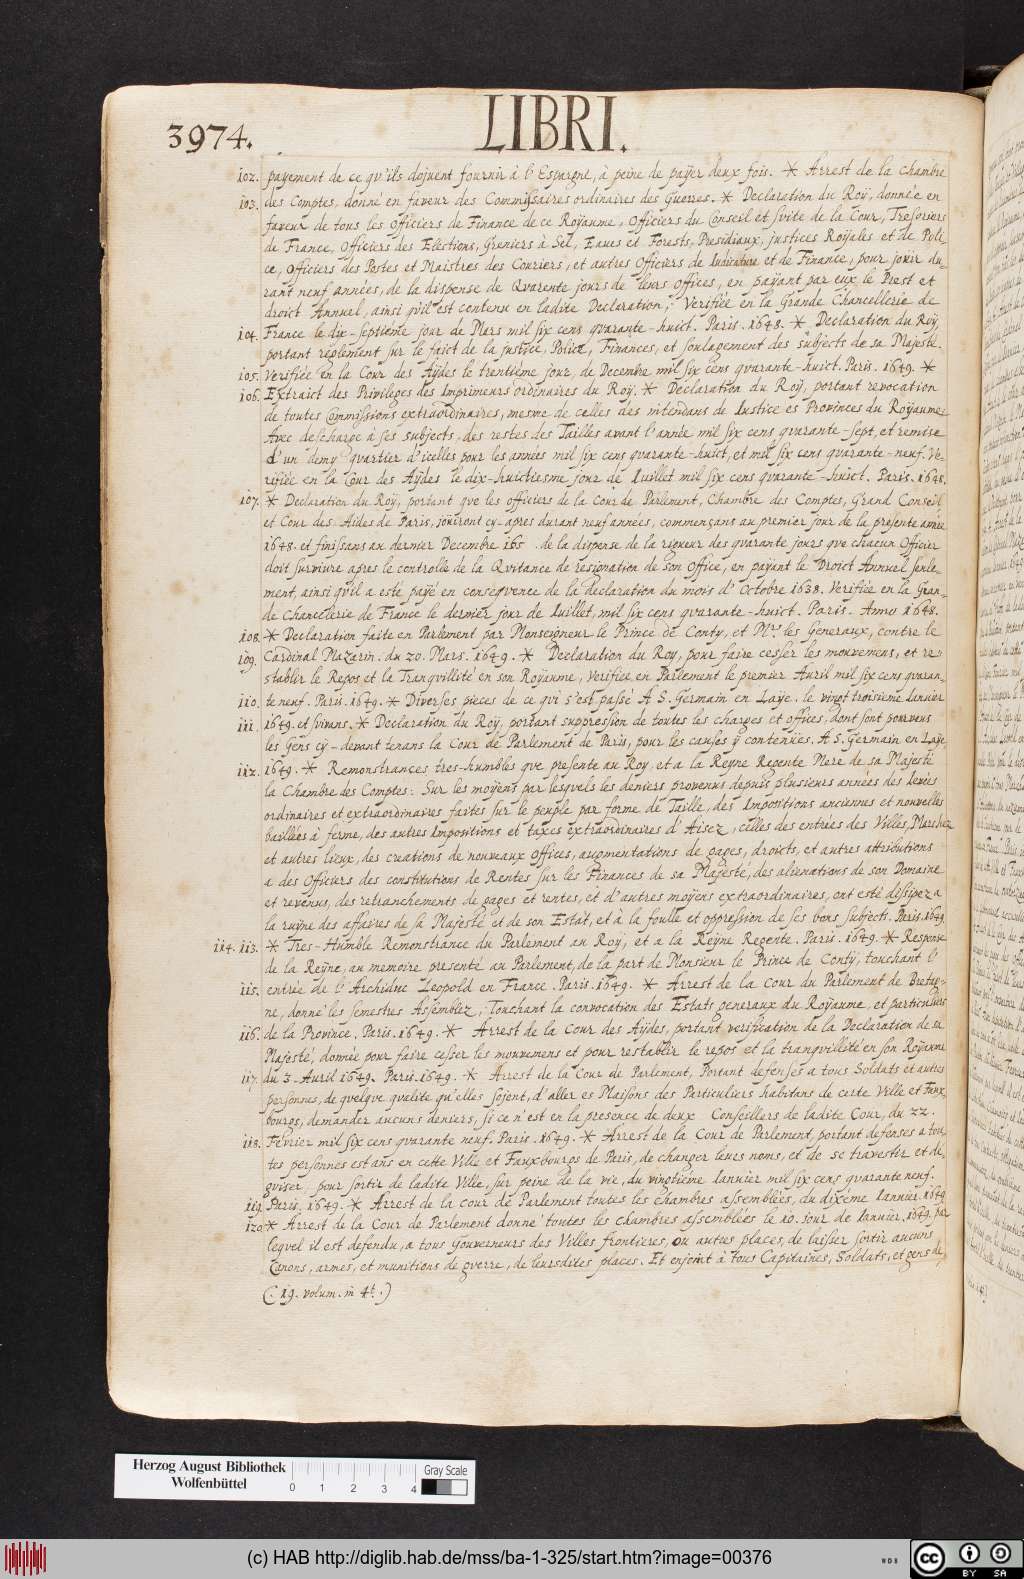 3974. LIBRI.
102. payement de ce qu'ils dojuent fournir à l'Espargne, à peine de payer deux fois. * Arrest de la Chambre
103. des Comptes, donné en faveur des Commissaires ordinaires des Guerres. * Declaration du Roy, donnée en
faveur de tous les Officiers de Finance de ce Royaume, Officiers du Conseil et suite de la Cour, Tresoriers
de France, Officiers des Elections, Greniers à Sel, Eaues et Forests, Presidiaux, justices Roijales et de Poli-
ce, Officiers des Postes et Maistres des Couriers, et autres Officiers de Iudicature et de Finance, pour joüir du-
rant neuf années, de la dispense de Quarente jours de leurs offices, en payant par eux le Prest et
droict Annuel, ainsi qu'il est contenu en ladite Declaration, Verifiée en la Grande Chancellerie de
104. France le dix-septieme jour de Mars mil six cens quarante-huict. Paris. 1648. * Declaration du Roy,
portant reglement sur le faict de la justice, Police, Finances, et soulagement des subjects de sa Majesté.
105. Verifiée en la Cour des Aydes le trentiéme jour de Decembre mil six cens quarante-huict. Paris. 1649. *
106. Extraict des Privileges des Imprimeurs ordinaires du Roy. * Declaration du Roy, portant revocation
de toutes Commissions extraordinaires, mesme de celles des intendans de Iustice es Provinces du Royaume,
Avec descharge à ses subjects, des restes des Tailles avant l'année mil six cens quarante-sept, et remise
d'un demy quartier d'icelles pour les années mil six cens quarante-huict, et mil six cens quarante-neuf. Ve-
rifiée en la Cour des Aydes le dix-huictiesme jour de Iuillet mil six cens quarante-huict. Paris. 1648.
107. * Declaration du Roy, portant que les officiers de la Cour de Parlement, Chambre des Comptes, Grand Conseil
et Cour des Aides de Paris, joüiront cy-apres durant neuf années, commençans au premier jour de la presente année
1648. et finissans au dernier Decembre 165 . de la dispense de la rigueur des quarante jours que chacun Officier
doit survivre apres le controlle de la Quitance de resignation de son Office, en payant le Droict Annuel seule-
ment, ainsi qu'il a esté payé en consequence de la declaration du mois d'Octobre 1638. Verifiée en la Gran-
de Chancellerie de France le dernier jour de Iuillet, mil six cens quarante-huict. Paris. Anno 1648.
108. * Declaration faite en Parlement par Monseigneur le Prince de Conty, et Mrs les Generaux, contre le
109. Cardinal Mazarin. du 20. Mars. 1649. * Declaration du Roy, pour faire cesser les mouvemens, et re-
stablir le Repos et la Tranquillité en son Royaume, Verifiée en Parlement le premier Auril mil six cens quaran-
110. te neuf. Paris. 1649. * Diverses pieces de ce qui s'est passé A S. Germain en Laye. le vingt troisieme Ianvier
111. 1649. et suivans. * Declaration du Roy, portant suppression de toutes les charges et offices, dont sont pourveus
les Gens cy-devant tenans la Cour de Parlement de Paris, pour les causes y contenües. A S. Germain en Laye,
112. 1649. * Remonstrances tres-humbles que presente au Roy, et a la Reyne Regente Mere de sa Majesté
la Chambre des Comptes: Sur les moyens par lesquels les deniers provenus depuis plusieurs années des leuées
ordinaires et extraordinaires faites sur le peuple par forme de Taille, des Impositions anciennes et nouvelles
baillées à ferme, des autres Impositions et taxes extraordinaires d'Aisez, celles des entrées des Villes, Marchez
et autres lieux, des creations de nouveaux offices, augmentations de gages, droicts, et autres attributions
a des Officiers des constitutions de Rentes sur les Finances de sa Majesté, des alienations de son Domaine
et revenus, des retranchements de gages et rentes, et d'autres moyens extraordinaires, ont esté dissipez a
la ruyne des affaires de sa Majesté et de son Estat, et à la foulle et oppression de ses bons subjects. Paris. 1649.
114. 113. * Tres-Humble Remonstrance du Parlement au Roy, et a la Reyne Regente. Paris. 1649. * Response
de la Reyne, au memoire presenté au Parlement, de la part de Monsieur le Prince de Conty, touchant l'
115. entrée de l'Archiduc Leopold en France. Paris. 1649. * Arrest de la Cour du Parlement de Bretag-
ne, donné les semestres Assemblez, Touchant la convocation des Estats generaux du Royaume, et particuliers
116. de la Province. Paris. 1649. * Arrest de la Cour des Aydes, portant verification de la Declaration de sa
Majesté, donnée pour faire cesser les mouvemens et pour restablir le repos et la tranquillité en son Royaume
117. du 3. Auril 1649. Paris. 1649. * Arrest de la Cour de Parlement, Portant defenses a tous Soldats et autres
personnes, de quelque qualité qu'elles soient, d'aller es Maisons des Particuliers habitans de cette Ville et Faux-
bourgs, demander aucuns deniers, si ce n'est en la presence de deux Conseillers de ladite Cour, du 22.
118. Fevrier mil six cens quarante neuf. Paris. 1649. * Arrest de la Cour de Parlement, portant defenses a tou-
tes personnes estans en cette Ville et Fauxbourgs de Paris, de changer leurs noms, et de se travestir et de
guiser, pour sortir de ladite Ville, sur peine de la vie, du vingtiéme Ianuier mil six cens quarante neuf.
119. Paris. 1649. * Arrest de la Cour de Parlement toutes les chambres assemblées, du dixéme Ianuier. 1649
120. * Arrest de la Cour de Parlement donné toutes les chambres assemblées le 10. jour de Ianuier. 1649. par
lequel il est defendu, a tous Gouverneurs des Villes frontieres, ou autres places, de laisser sortir aucuns
Canons, armes, et munitions de guerre, de leursdites places. Et enjoint à tous Capitaines, Soldats, et gens de,
(. 19. volum. in 4t.)
Herzog August Bibliothek
Wolfenbüttel
0 1 2 3 4
Gray Scale
(c) HAB http://diglib.hab.de/mss/ba-1-325/start.htm?image=00376
WDB
CC BY SA